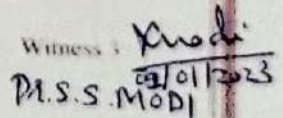 Witness :
09/01/2023
DR.S.S.MODI